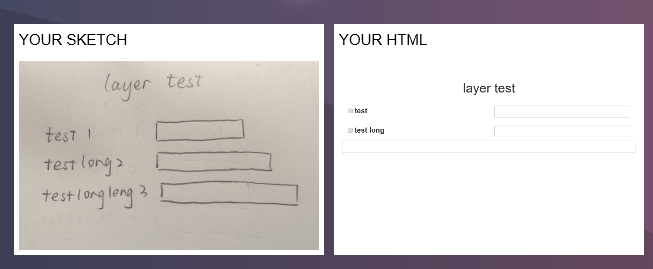 YOUR SKETCH
layer test
test 1
test long 2
test long leng 3
YOUR HTML
layer test
test
test long